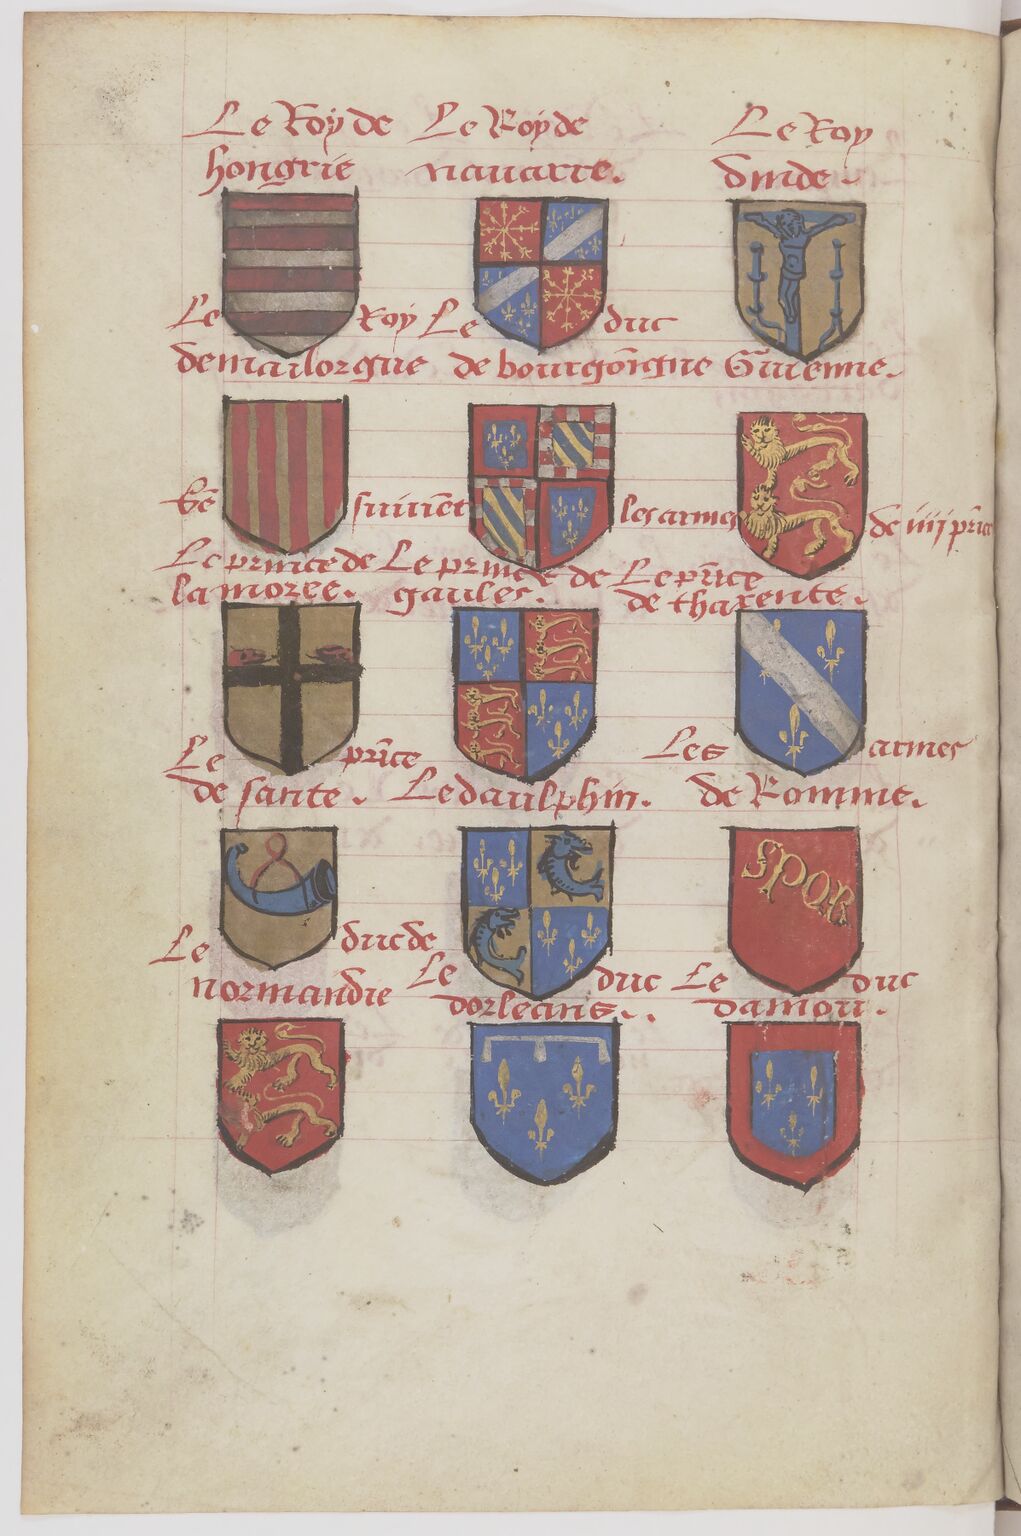 Le Roy de
hongrie
Le Roy de
nauarre.
Le Roy
dinde.
Le Roy
de maillorgue
Le duc
de bourgōngne
Guienne.
Sē suiuēt les armes de iiij prīce
Le prince de
la moree.
Le prince de
gaules.
Le prīce
de tharente.
Le prīce
de sante.
Le daulphin.
Les armes
de Romme.
SPQR
Le duc de
normandie
Le duc
dorleans..
Le duc
damou.